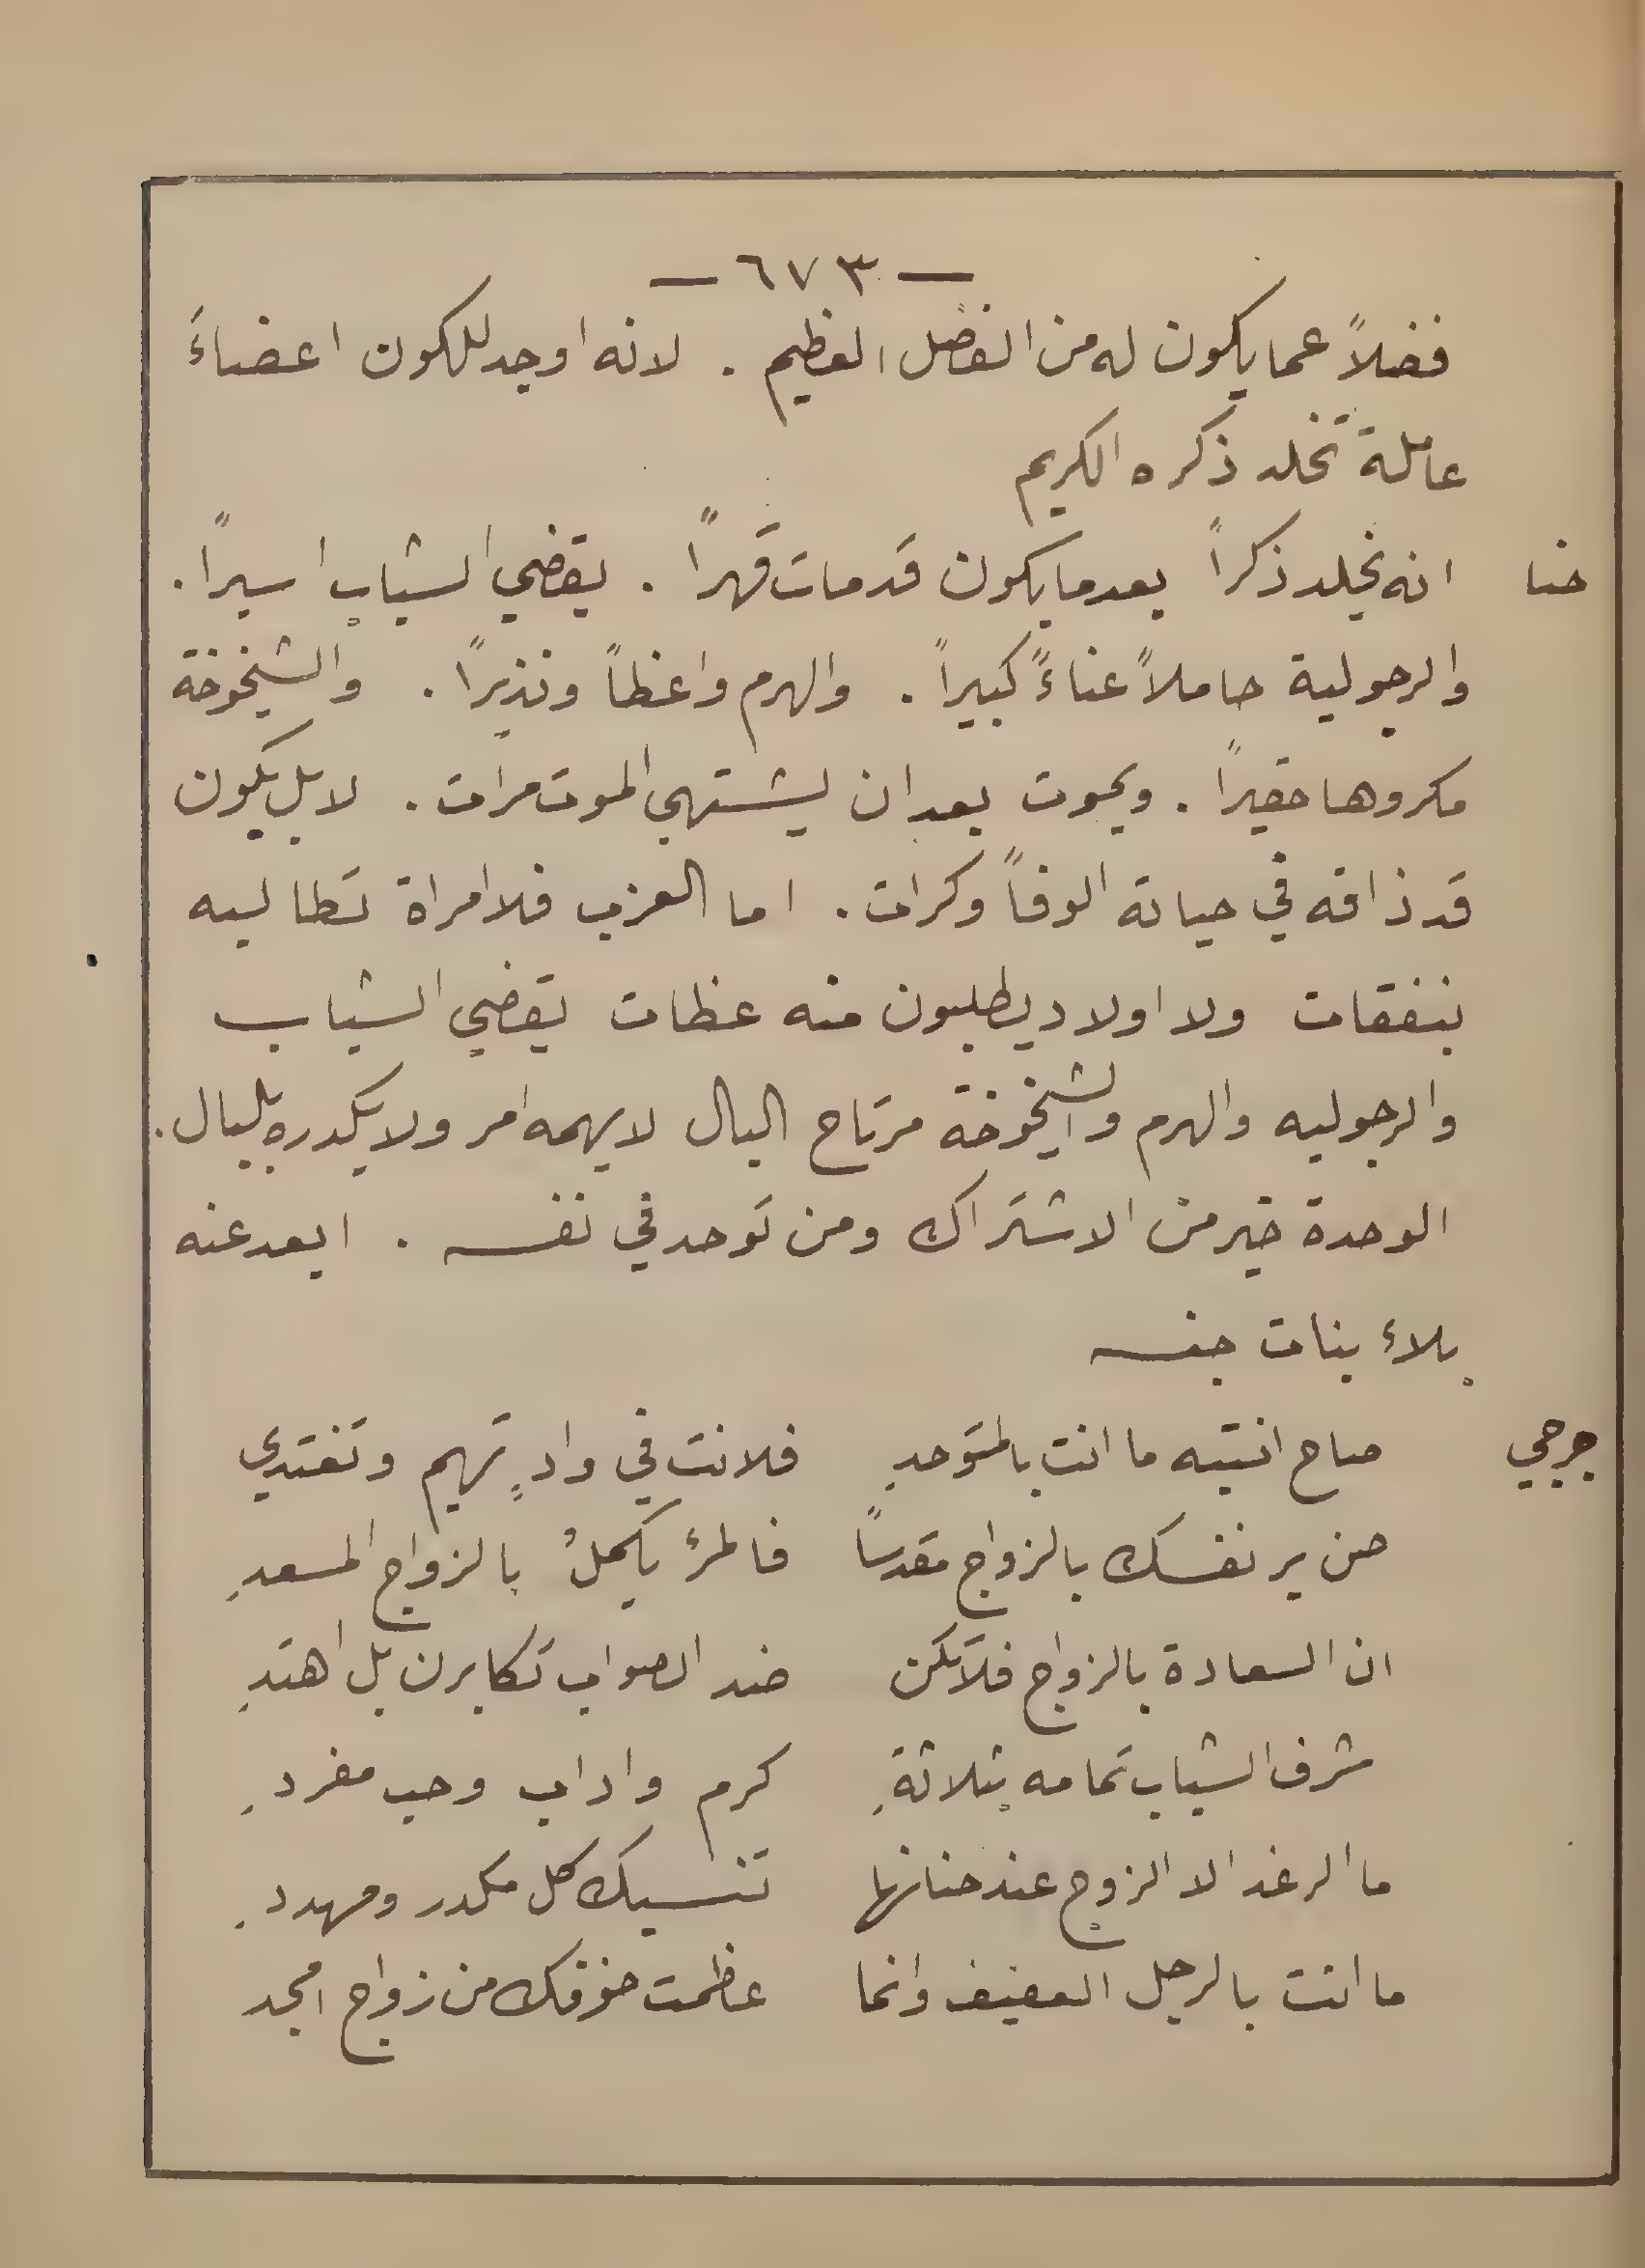 — ٦٧٣ —
فضلاً عما يكون له من الفضل العظيم . لانه اوجد للكون اعضاءَ
عاملة تخلد ذكره الكريم
حنا انه يخلد ذكراً بعدما يكون قد مات قهراً . يقضي الشباب اسيراً .
والرجولية حاملاً عناءً كبيراً . والهرم واعظاً ونذيراً . والشيخوخة
مكروها حقيراً . ويموت بعد ان يشتهي الموت مرات . لا بل يكون
قد ذاقه في حياته الوفاً وكرات . اما العزب فلا امراة تطالبه
بنفقات ولا اولاد يطلبون منه عظات يقضي الشباب
والرجوليه والهرم والشيخوخة مرتاح البال لا يهمه امر ولا يكدره بلبال .
الوحدة خير من الاشتراك ومن توحد في نفسه . ابعد عنه
بلاء بنات جنسه
جرجي صاح انتبه ما انت بالمتوحدِ فلانت في وادٍ تهيم وتغتدي
صن ير نفسك بالزواج مقدساً فالمرءُ يكملُ بالزواج المسعدِ
ان السعادة بالزواج فلا تكن ضد الصواب تكابرن بل اهتدِ
شرف الشباب تمامه بثلاثةِ كرم واداب وحب مفردِ
ما الرغد الا الزوج عند حنانها تنسيك كل مكدر ومهددِ
ما انت بالرجل العفيف وانما عظمت خوفك من زواج امجد